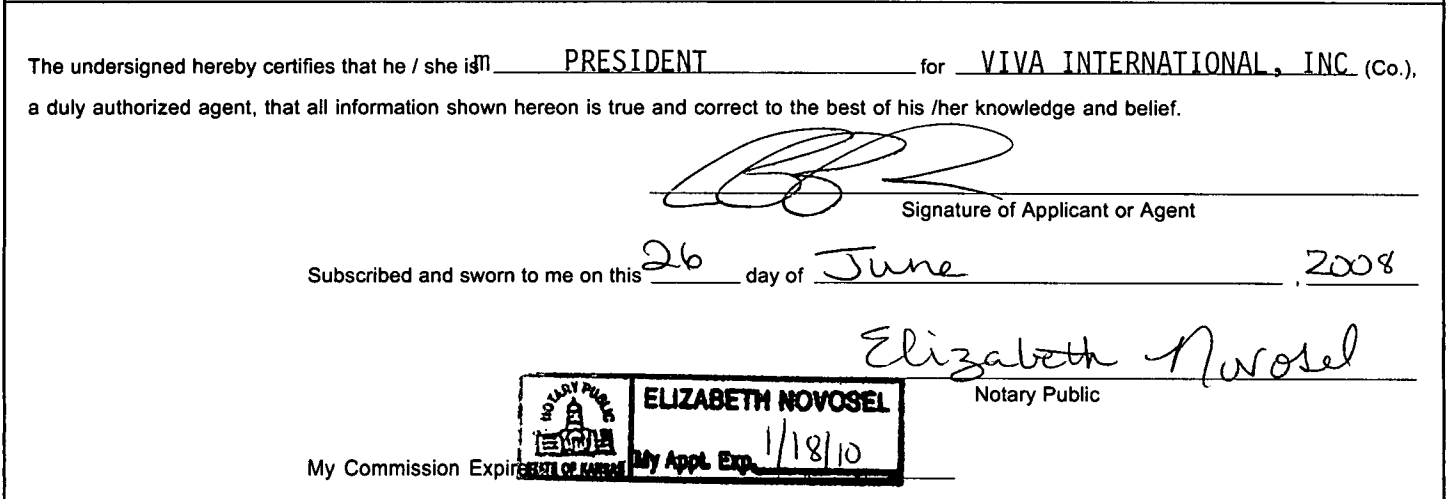 The undersigned hereby certifies that he / she ism PRESIDENT for VIVA INTERNATIONAL, INC (Co.),
a duly authorized agent, that all information shown hereon is true and correct to the best of his /her knowledge and belief.
Signature of Applicant or Agent
Subscribed and sworn to me on this 26 day of June , 2008
Elizabeth Novosel
Notary Public
NOTARY PUBLIC
STATE OF KANSAS
ELIZABETH NOVOSEL
My Appt. Exp. 1/18/10
My Commission Expires